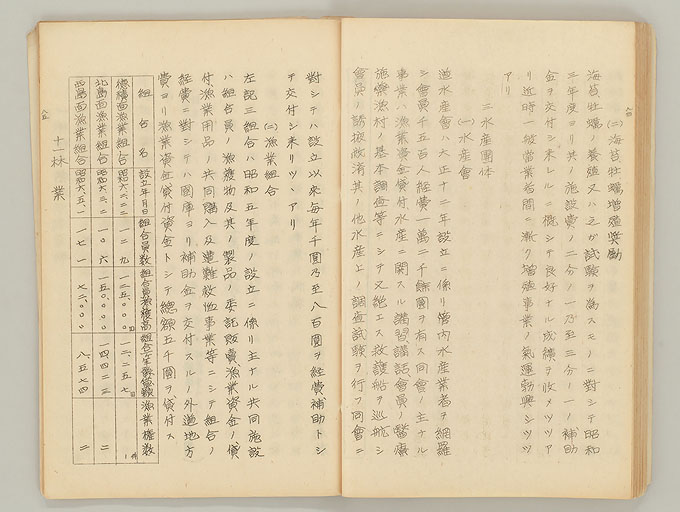 (二)海苔牡蠣增殖奬勵
海苔牡蠣ノ養殖又ハ之ガ試驗ヲ爲スモノニ對シテ昭和
三年度ヨリ其ノ施設費ノ二分ノ一乃至三分ノ一ノ補助
金ヲ交付シ來レルニ概シテ良好ナル成績ヲ收メツツア
リ近時一般當業者間ニ漸ク增殖事業ノ氣運勃興シツツ
アリ
三水産團体
(一)水産會
道水産會ハ大正十二年設立ニ係リ管内水産業者ヲ網羅
シ會員千五百人經費一萬二千餘圓ヲ有ス同會ノ主ナル
事業ハ漁業資金貸付水産ニ関スル講習講話會員ノ醫療
施療漁村ノ基本調査等ニシテ又絶エス救護船ヲ巡航シ
會員ノ誘掖救濟其ノ他水産上ノ調査試驗ヲ行フ同會ニ
對シテハ設立以來每年千圓乃至八百圓ヲ經費補助トシ
テ交付シ來リツヽアリ
(二)漁業組合
左記三組合ハ昭和五年度ノ設立ニ係リ主ナル共同施設
ハ組合員ノ漁獲物及其ノ製品ノ委託販賣漁業資金ノ貸
付漁業用品ノ共同購入及遭難救恤事業等ニシテ組合ノ
經費ニ對シテハ國庫ヨリ補助金ヲ交付スルノ外道地方
費ヨリ漁業資金貸付資金トシテ總額五千圓ヲ貸付ス
組合名 設立年月日 組合員數 組合員漁獲高 漁業權數
德積面漁業組合 昭六、二、二 一二九 一二五、〇〇〇 一二、二五七 一
北島面漁業組合 昭六、三、二 一〇六 一五〇、〇〇〇 一四四二三 二
西島面漁業組合 昭六、五、一 一七一 七二、〇〇〇 八、五七四 二
十一林業